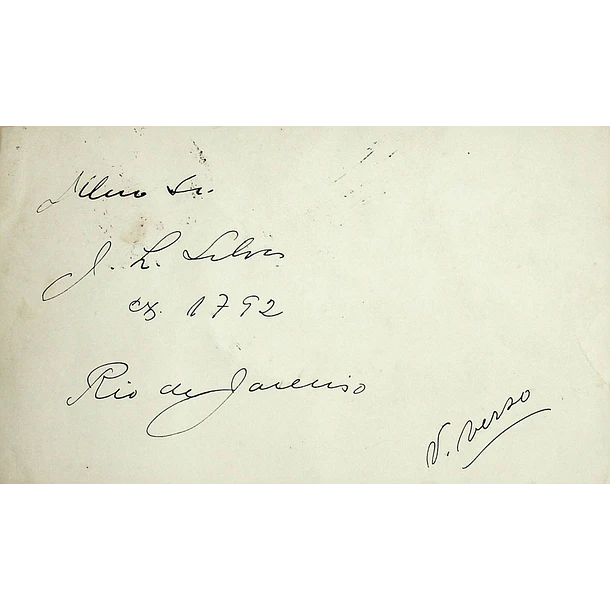 Ilmo Sr.
J. L. Silva
cx. 1792
Rio de Janeiro
V. verso